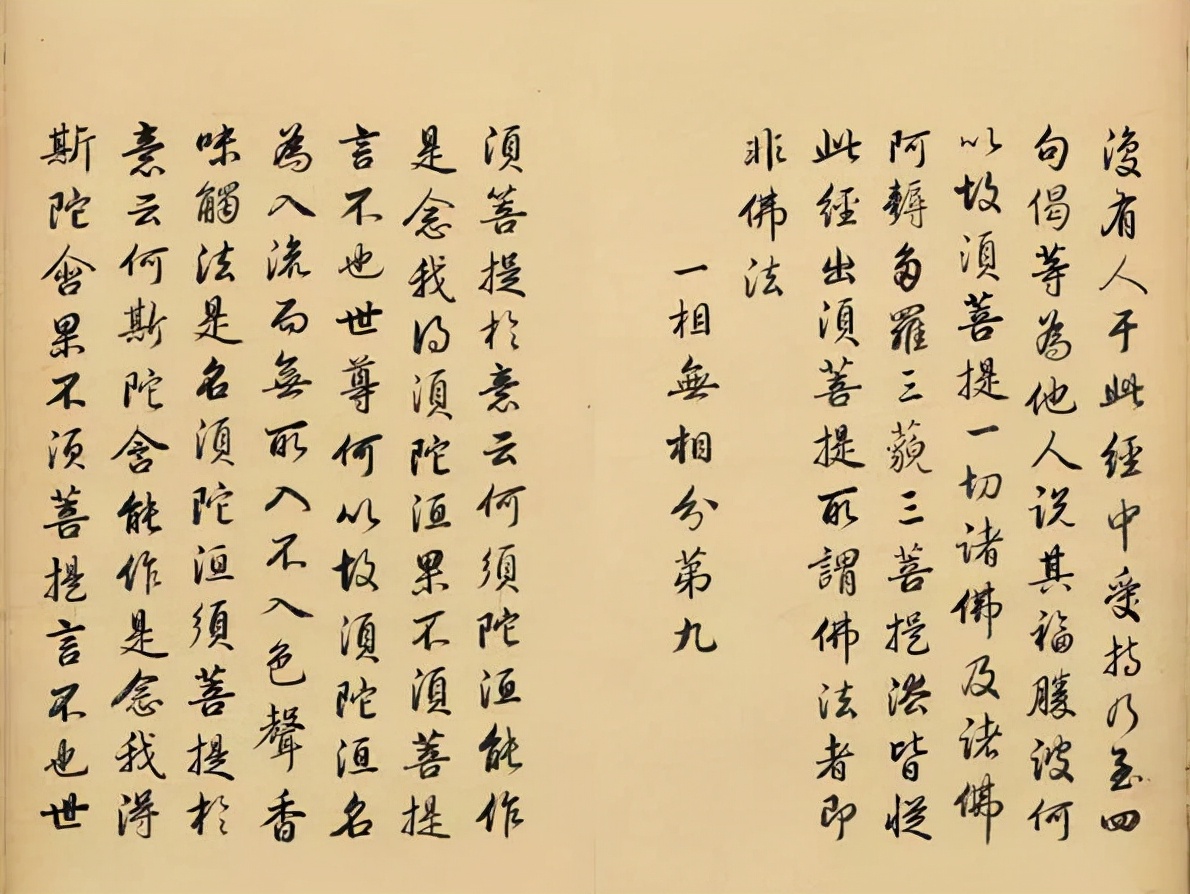 復有人于此經中受持乃至四
句偈等為他人说其福勝彼何
以故須菩提一切诸佛及诸佛
阿耨多羅三藐三菩提法皆從
此經出須菩提所謂佛法者即
非佛法
一相無相分第九
須菩提於意云何須陀洹能作
是念我得須陀洹果不須菩提
言不也世尊何以故須陀洹名
為入流而無所入不入色聲香
味觸法是名須陀洹須菩提於
意云何斯陀含能作是念我得
斯陀含果不須菩提言不也世